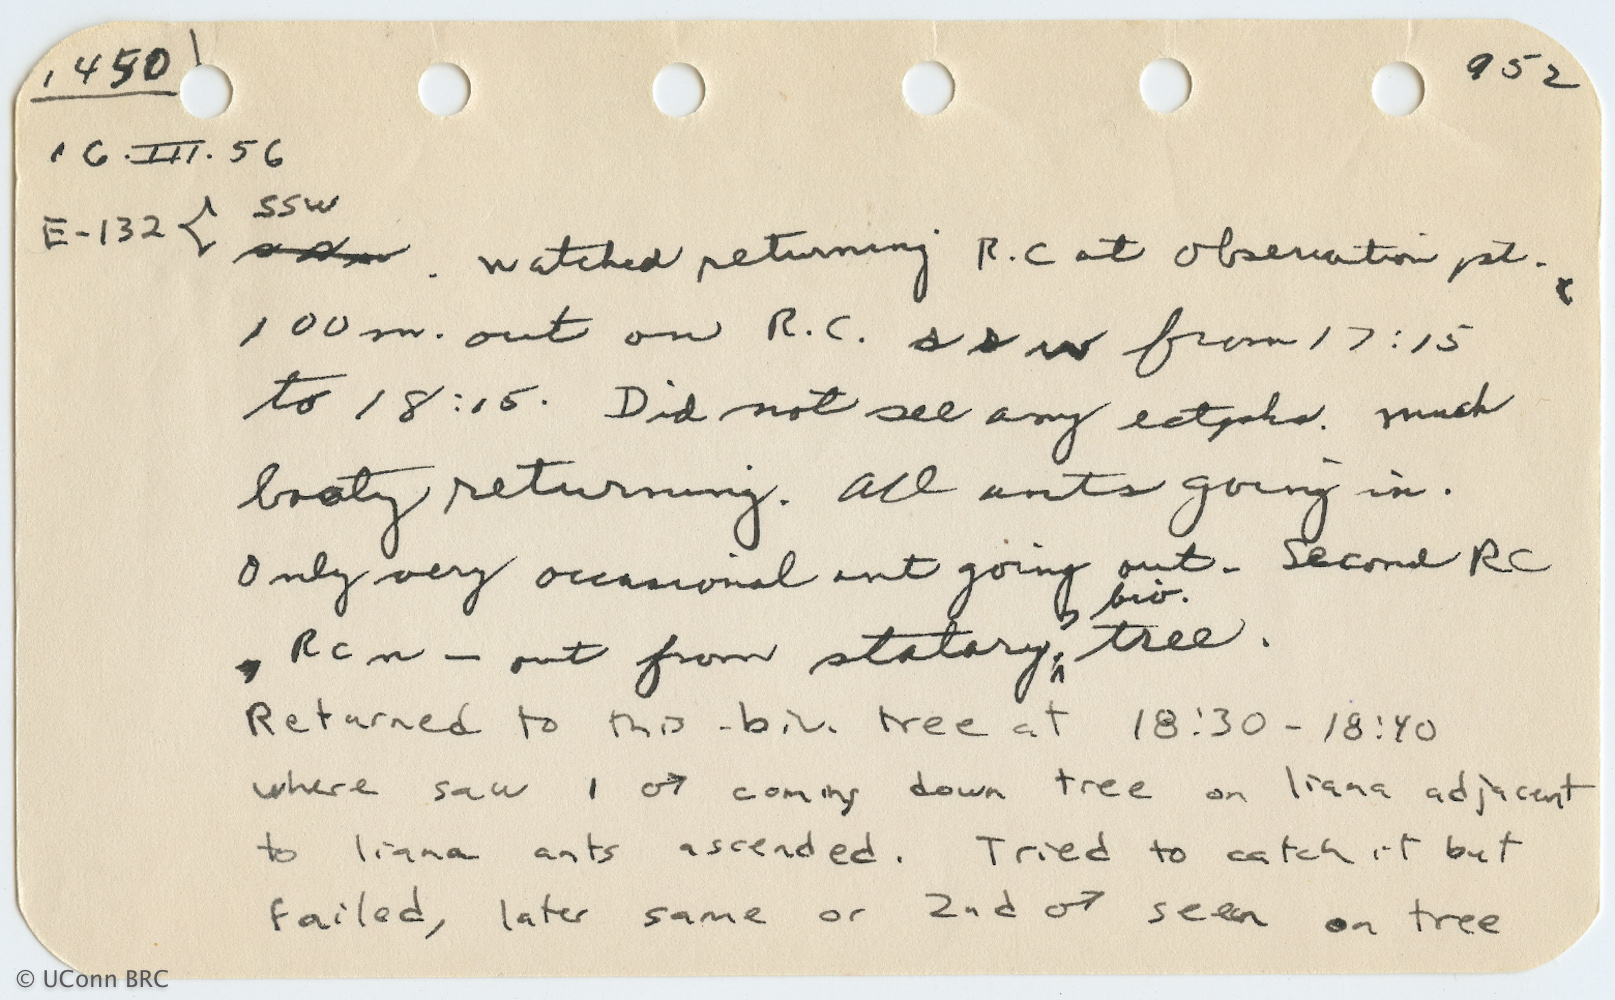 1450 952
16.III.56
E-132 { SSW
ssw . watched returning R.C at observation pt.
100 m. out on R.C. SSW from 17:15
to 18:15. Did not see any ectpha. much
booty returning. All ants going in.
Only very occasional ant going out. Second RC
biv.
RC n — out from statary, tree.
Returned to this biv. tree at 18:30-18:40
where saw 1 ♂ coming down tree on liana adjacent
to liana ants ascended. Tried to catch it but
failed, later same or 2nd ♂ seen on tree
© UConn BRC